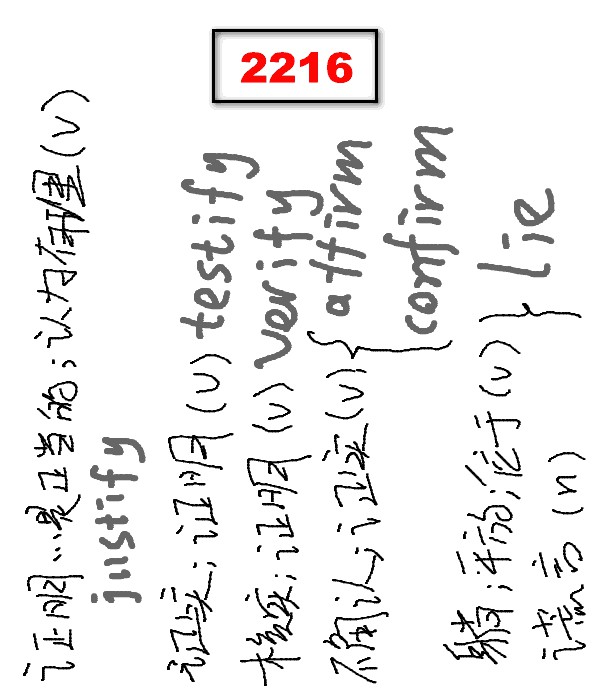 2216
证明…是正当的;认为有理(v)
justify
证实;证明(v) testify
核实;证明(v) verify
确认;证实(v) { affirm
confirm
躺;平放;位于(v)
谎言(n)
} lie